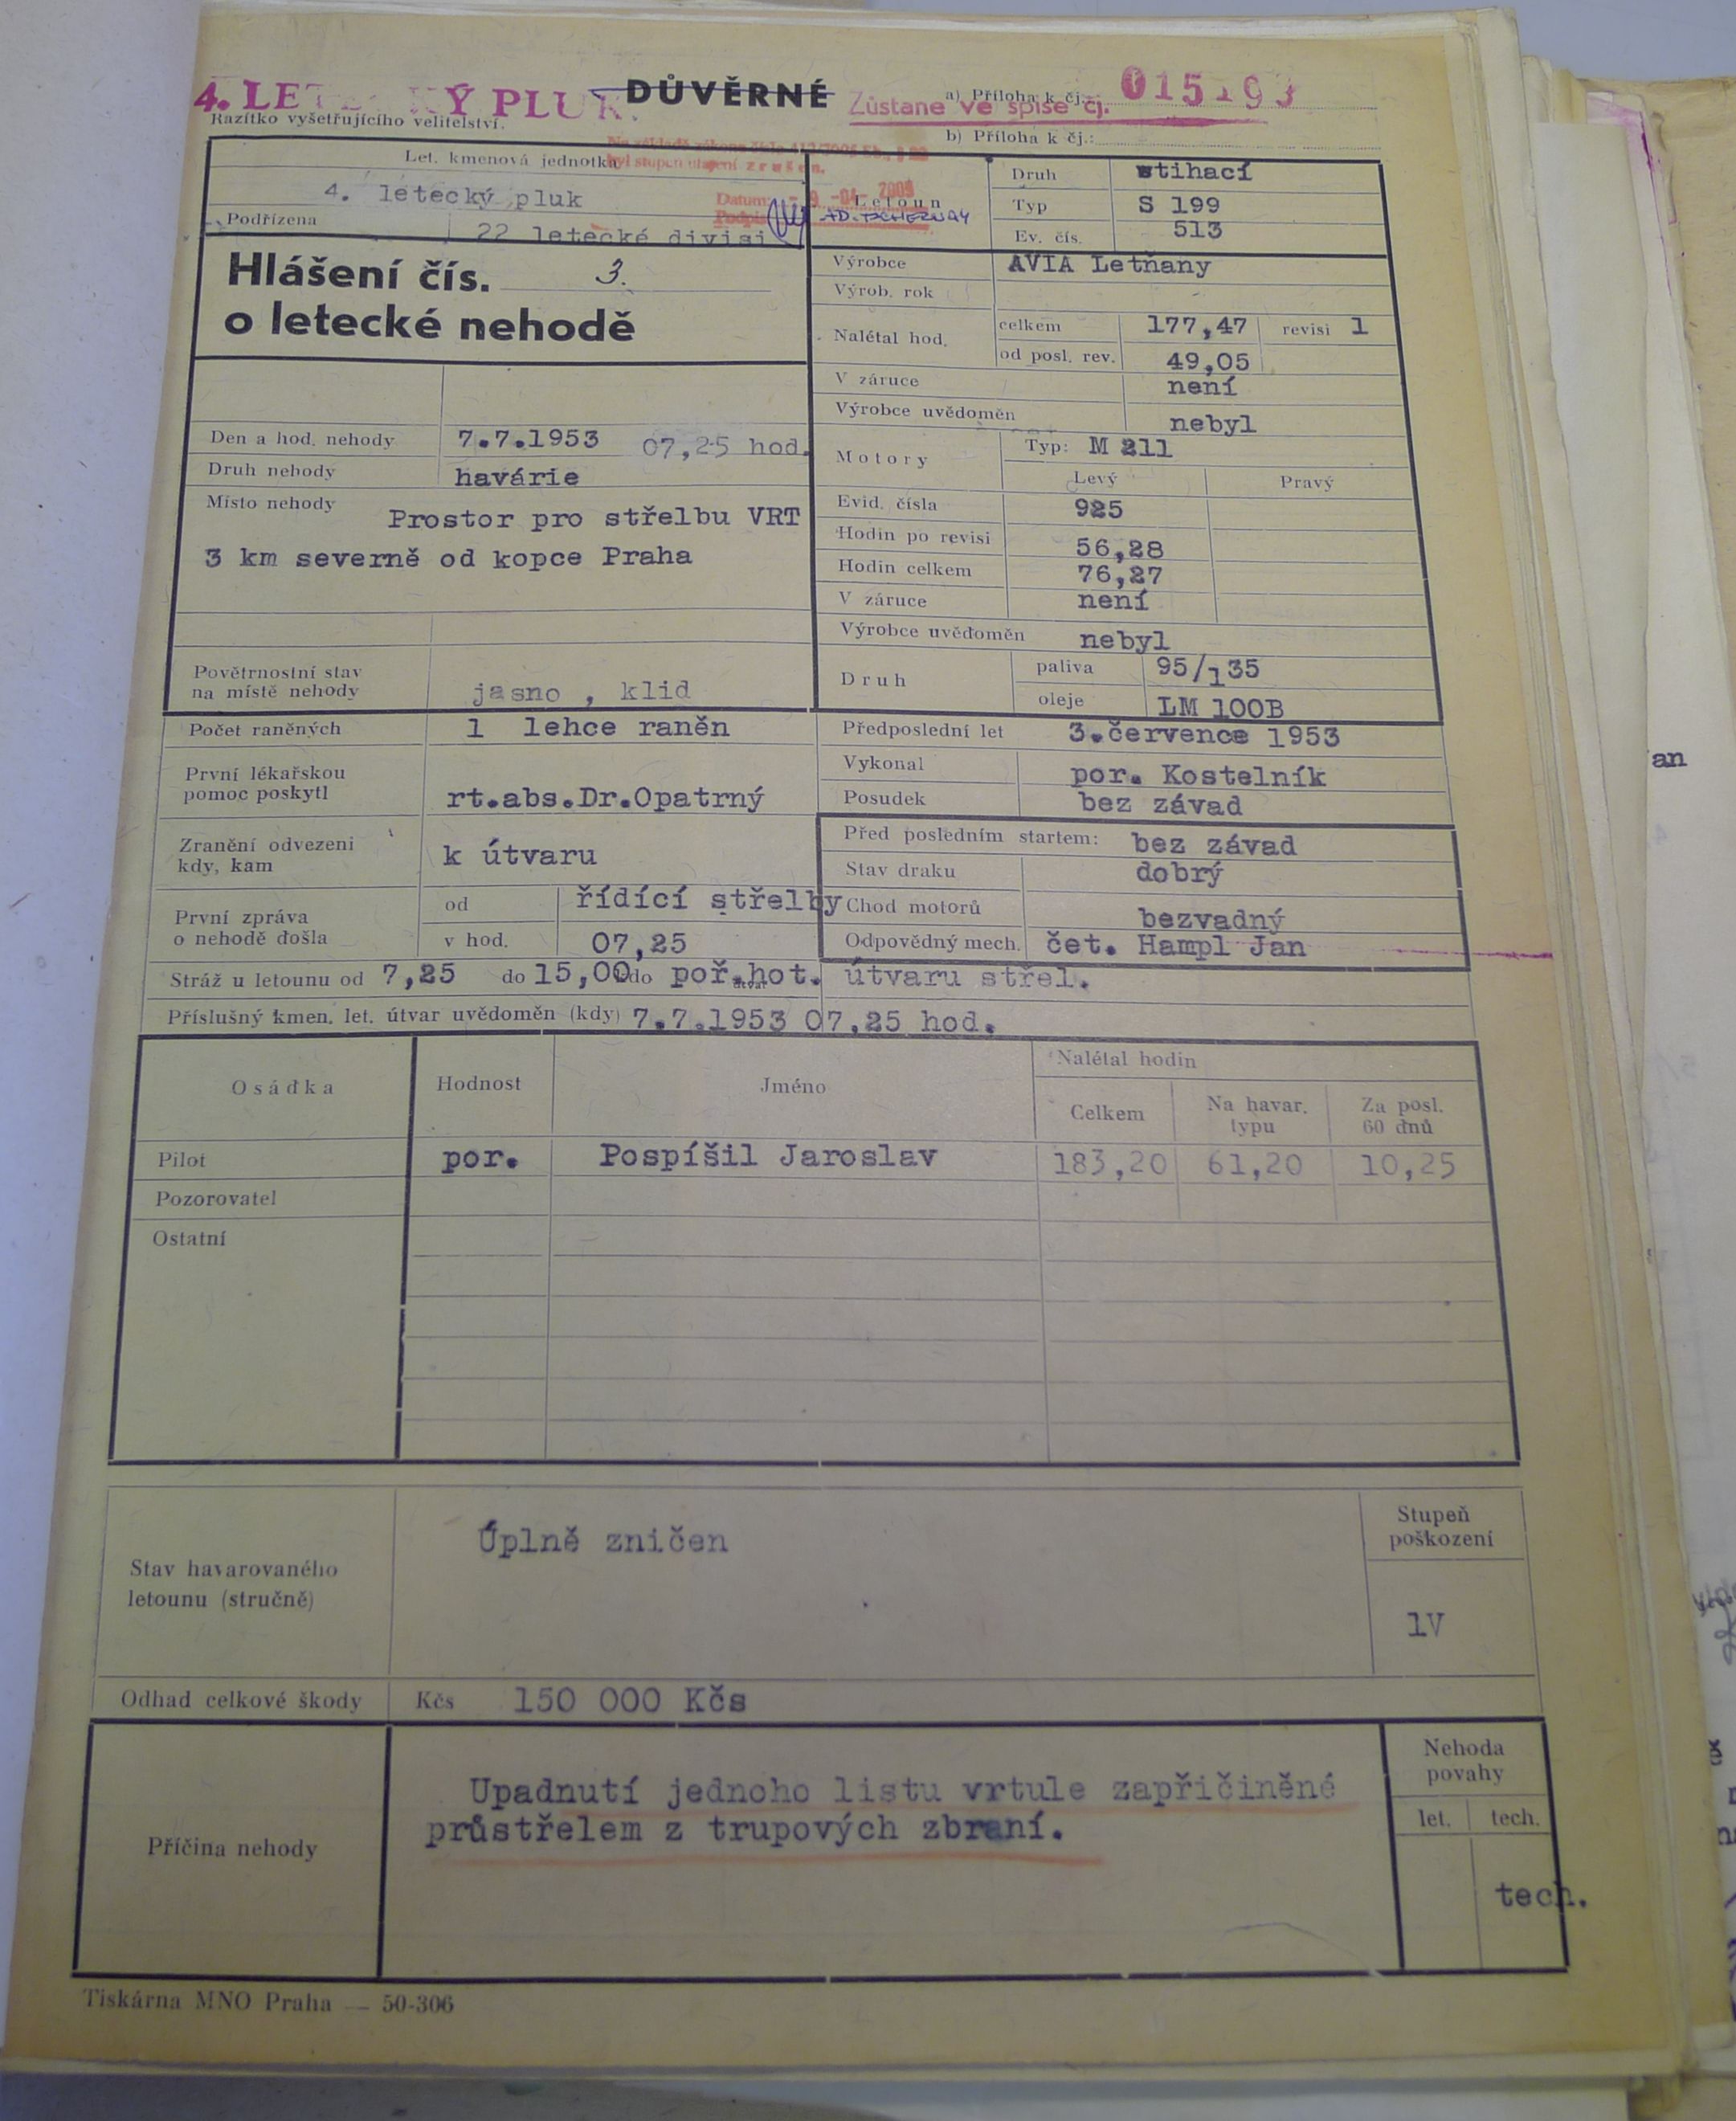 4. LETECKÝ PLUK.
DŮVĚRNÉ
Zůstane ve spise čj.
a) Příloha k čj.: 015193
Razítko vyšetřujícího velitelství.
b) Příloha k čj.:
Na základě zákona číslo 412/2005 Sb.,
byl stupeň utajení zrušen.
Datum: 9 -04- 2009
Podpis
Let. kmenová jednotka
4. letecký pluk
Podřízena 22 letecké divisi
Hlášení čís. 3.
o letecké nehodě
Letoun
Druh stihací
Typ S 199
Ev. čís. 513
Výrobce AVIA Letňany
Výrob. rok
Nalétal hod. celkem 177,47 revisi 1
od posl. rev. 49,05
V záruce není
Výrobce uvědoměn nebyl
Den a hod. nehody 7.7.1953 07,25 hod.
Druh nehody havárie
Místo nehody Prostor pro střelbu VRT
3 km severně od kopce Praha
Povětrnostní stav
na místě nehody jasno , klid
Motory Typ: M 211
Levý Pravý
Evid. čísla 925
Hodin po revisi 56,28
Hodin celkem 76,27
V záruce není
Výrobce uvědoměn nebyl
Druh paliva 95/135
oleje LM 100B
Počet raněných 1 lehce raněn
První lékařskou
pomoc poskytl rt.abs.Dr.Opatrný
Zranění odvezeni
kdy, kam k útvaru
První zpráva
o nehodě došla od řídící střelby
v hod. 07,25
Předposlední let 3.července 1953
Vykonal por. Kostelník
Posudek bez závad
Před posledním startem: bez závad
Stav draku dobrý
Chod motorů bezvadný
Odpovědný mech. čet. Hampl Jan
Stráž u letounu od 7,25 do 15,00 kdo poř.hot. útvaru střel.
útvar
Příslušný kmen. let. útvar uvědoměn (kdy) 7.7.1953 07.25 hod.
Osádka Hodnost Jméno Nalétal hodin
Celkem Na havar. typu Za posl. 60 dnů
Pilot por. Pospíšil Jaroslav 183,20 61,20 10,25
Pozorovatel
Ostatní
Stav havarovaného
letounu (stručně) Úplně zničen
Stupeň
poškození
1V
Odhad celkové škody Kčs 150 000 Kčs
Příčina nehody
Upadnutí jednoho listu vrtule zapřičiněné
průstřelem z trupových zbraní.
Nehoda
povahy
let. tech.
tech.
Tiskárna MNO Praha — 50-306
an